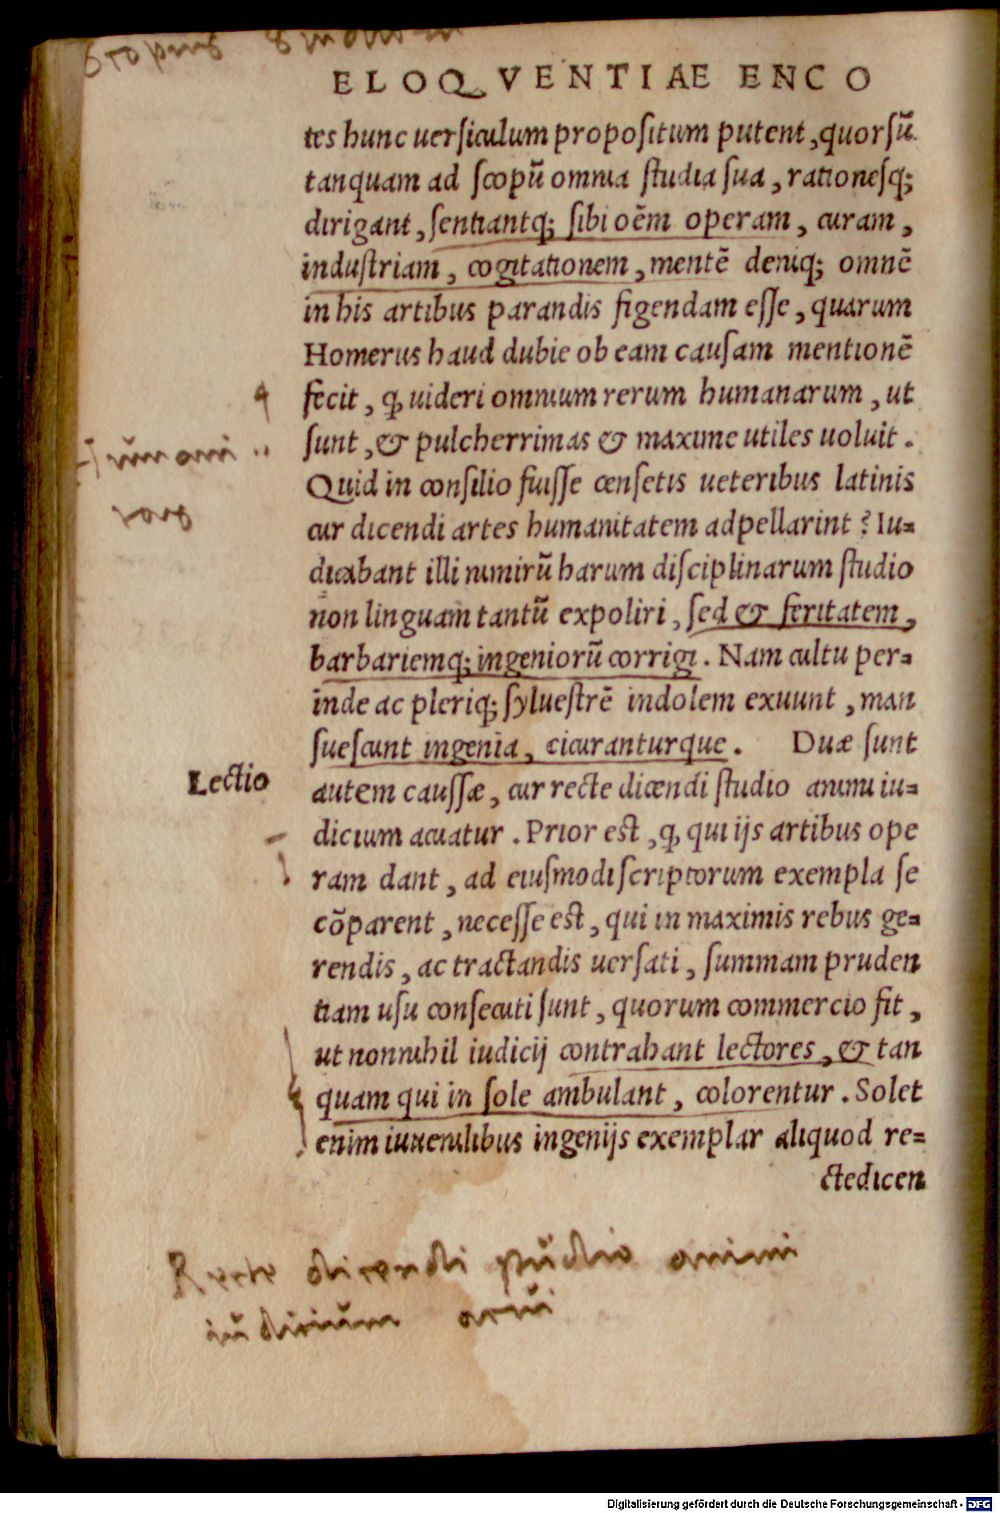 ELOQVENTIAE ENCO
tes hunc uersiculum propositum putent, quorsũ
tanquam ad scopũ omnia studia sua, rationesq;
dirigant, sentiantq; sibi oẽm operam, curam,
industriam, cogitationem, mentẽ deniq; omnẽ
in his artibus parandis figendam esse, quarum
Homerus haud dubie ob eam causam mentionẽ
fecit, ꝙ uideri omnium rerum humanarum, ut
sunt, & pulcherrimas & maxime utiles uoluit.
Quid in consilio fuisse censetis ueteribus latinis
cur dicendi artes humanitatem adpellarint? Iu=
dicabant illi nimirũ harum disciplinarum studio
non linguam tantũ expoliri, sed & feritatem,
barbariemq; ingeniorũ corrigi. Nam cultu per=
inde ac pleriq; syluestrẽ indolem exuunt, man
suescunt ingenia, cicuranturque. Duæ sunt
Lectio
autem caussæ, cur recte dicendi studio animi iu=
dicium acuatur. Prior est, ꝙ qui ijs artibus ope
ram dant, ad eiusmodi scriptorum exempla se
cõparent, necesse est, qui in maximis rebus ge=
rendis, ac tractandis uersati, summam pruden
tiam usu consecuti sunt, quorum commercio fit,
ut nonnihil iudicij contrahant lectores, & tan
quam qui in sole ambulant, colorentur. Solet
enim iuuenilibus ingenijs exemplar aliquod re=
ctedicen
Recte dicendi studio animi
iudicium acui
Digitalisierung gefördert durch die Deutsche Forschungsgemeinschaft - DFG